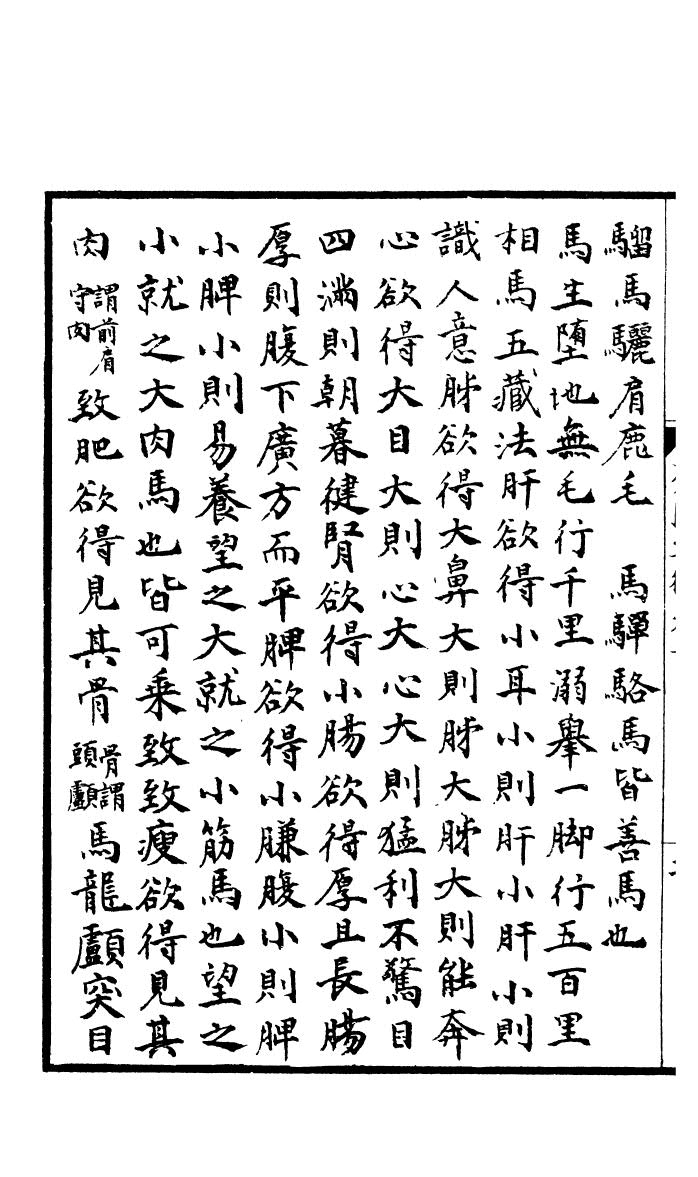 騮馬驪肩鹿毛　馬驒駱馬皆善馬也
馬生墮地無毛行千里溺舉一脚行五百里
相馬五藏法肝欲得小耳小則肝小肝小則
識人意肺欲得大鼻大則肺大肺大則能奔
心欲得大目大則心大心大則猛利不驚目
四滿則朝暮健腎欲得小腸欲得厚且長腸
厚則腹下廣方而平脾欲得小膁腹小則脾
小脾小則易養望之大就之小筋馬也望之
小就之大肉馬也皆可乗致致瘦欲得見其
肉謂前肩守肉致肥欲得見其骨骨謂頭顱馬龍顱突目